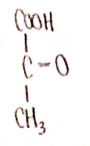 COOH
C-O
CH₃